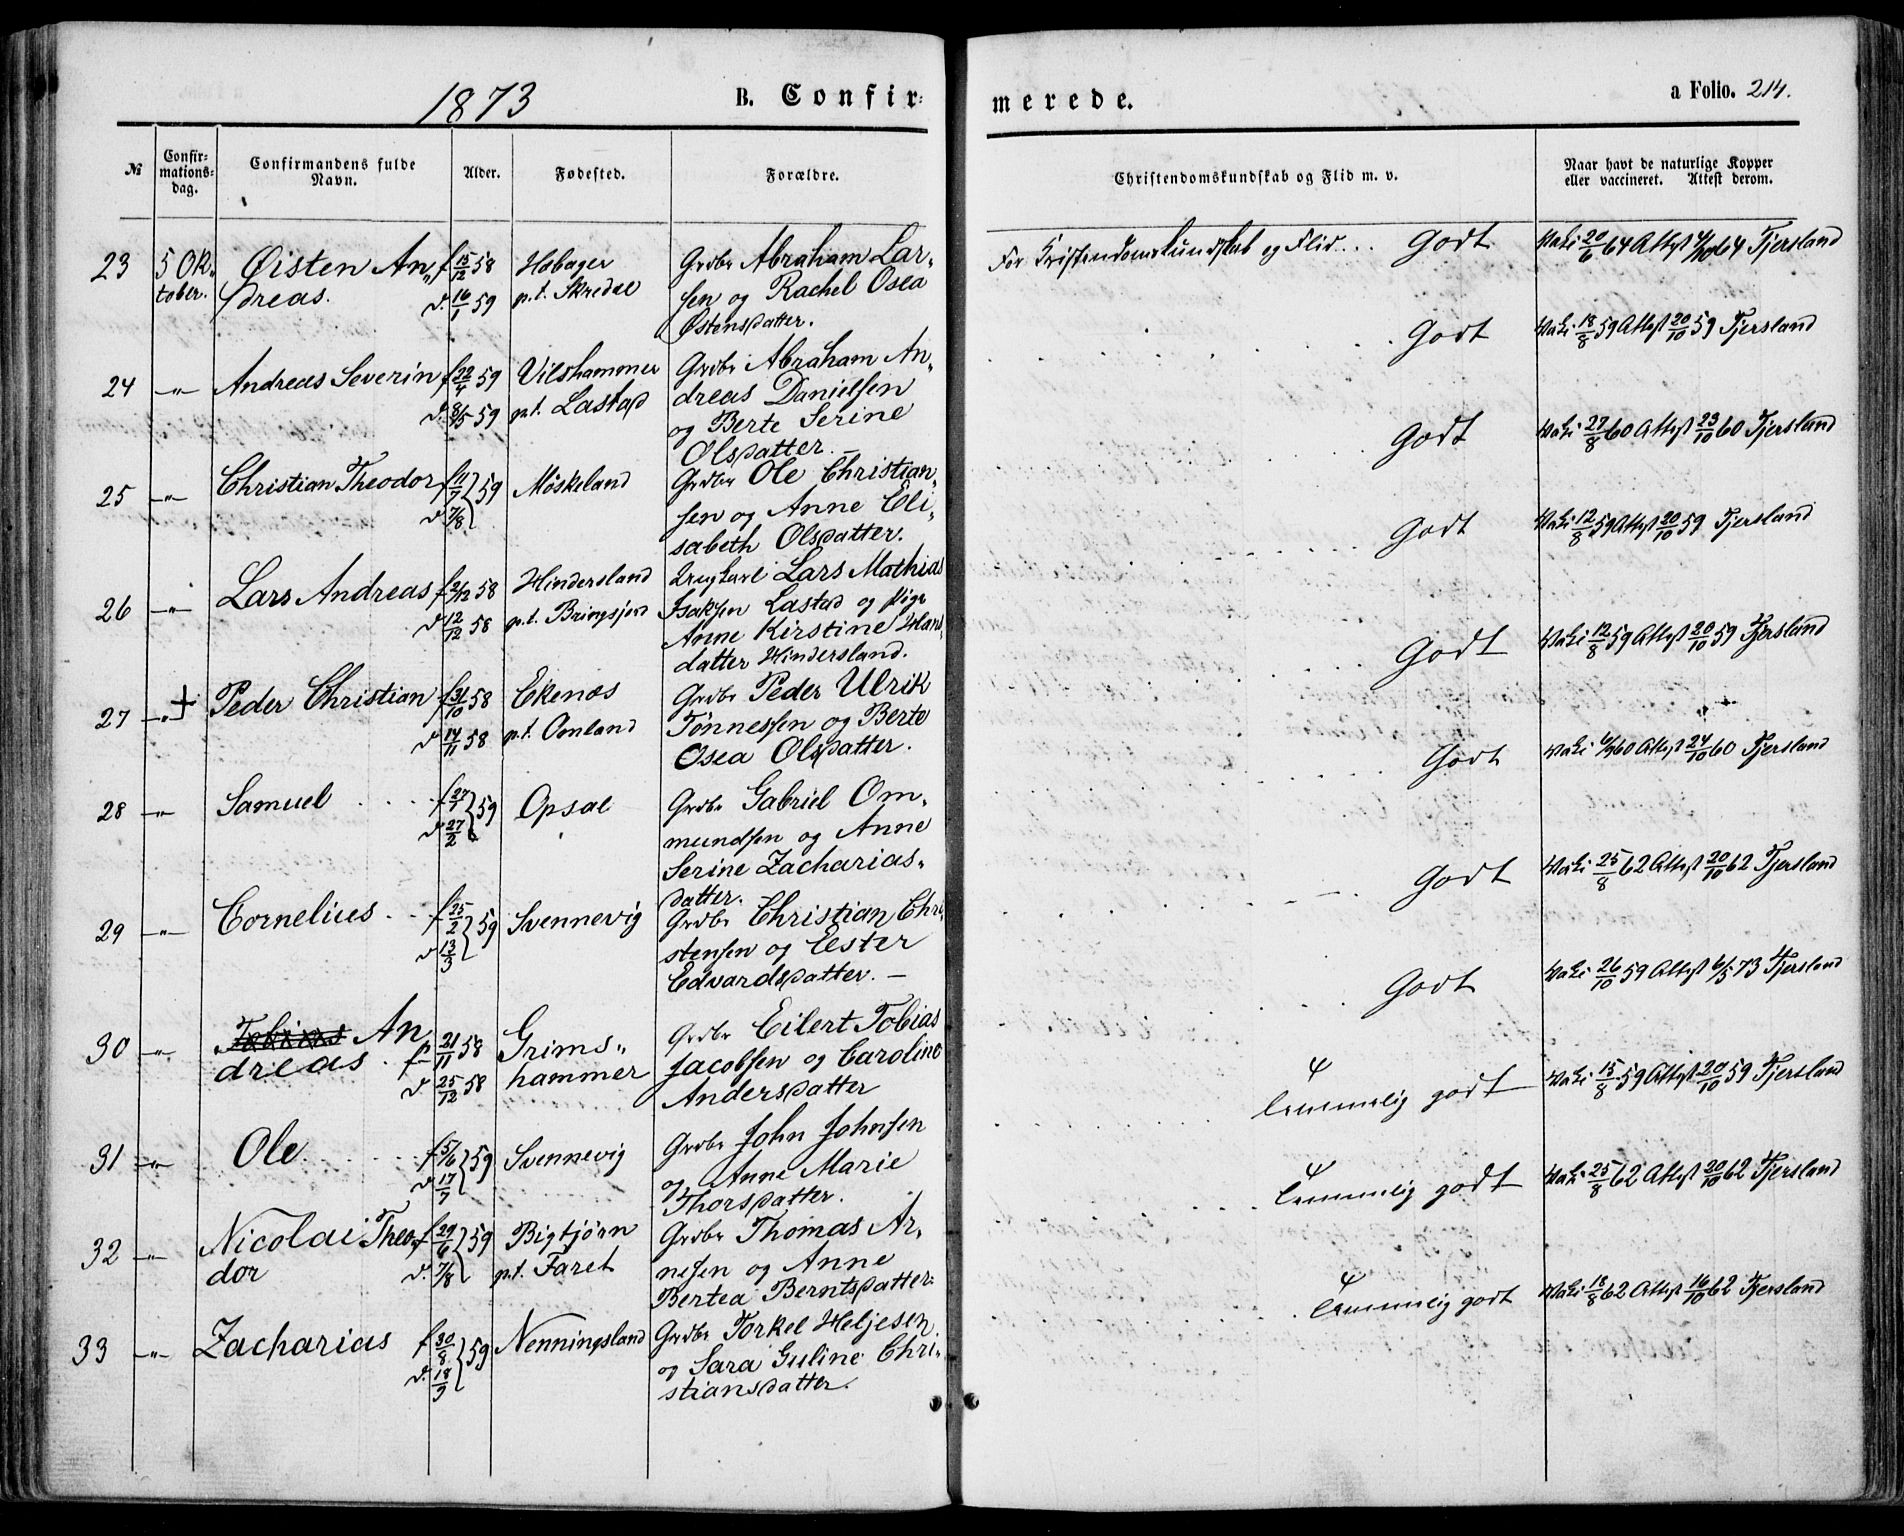 1873
B. Confir-
merede.
a Folio. 214.
№
Confir-
mations-
dag.
Confirmandens fulde
Navn.
Alder.
Fødested.
Forældre.
Christendomskundskab og Flid m. v.
Naar havt de naturlige Kopper
eller vaccineret. Attest derom.
23 5 Ok- Øisten An- f 15/12 58 Høbager Grdbr Abraham Lar-
tober. dreas. d. 16/1 59 p.t. Skredal sen og Rachel Osea
Østensdatter.
For Kristendomskundskab og Flid... Godt Vaks 20/6 64 Attest 4/10 64 Tjersland
24 -"- Andreas Severin f 22/4 59 Vilshammer Grdbr Abraham An-
d. 8/5 59 p.t. Lastad dreas Danielsen
og Berte Serine
Olsdatter.
Godt Vaks 18/8 59 Attest 20/10 59 Tjersland
25 -"- Christian Theodor f 11/7 59 Møskeland Grdbr Ole Christian-
d 7/8 sen og Anne Eli-
sabeth Olsdatter.
Godt Vaks 27/8 60 Attest 23/10 60 Tjersland
26 -"- Lars Andreas f 2/12 58 Hindersland Ungkarl Lars Mathias
d 12/12 58 p.t. Bringsjord Isaksen Lastad og Pige
Anne Kirstine Hans-
datter Hindersland.
Godt Vaks 12/8 59 Attest 20/10 59 Tjersland
27 -"- + Peder Christian f 31/10 58 Ekenæs Grdbr Peder Ulrik
d 14/11 58 p.t. Omland Tønnessen og Berte
Osea Olsdatter.
Godt Vaks 12/8 59 Attest 20/10 59 Tjersland
28 -"- Samuel f 27/1 59 Opsal Grdbr Gabriel Om-
d 27/2 mundsen og Anne
Serine Zacharias-
datter.
Godt Vaks 6/9 60 Attest 24/10 60 Tjersland
29 -"- Cornelius f 25/2 59 Svennevig Grdbr Christian Chri-
d 13/3 stensen og Ester
Edvardsdatter.
Godt Vaks 25/8 62 Attest 20/10 62 Tjersland
30 -"- Tobias An f 21/11 58 Grims- Grdbr Eilert Tobias
dreas d. 25/12 58 hammer Jacobsen og Caroline
Andersdatter
Godt Vaks 26/10 59 Attest 6/5 73 Tjersland
31 -"- Ole f 5/6 59 Svennevig Grdbr John Johnsen
d 17/7 og Anne Marie
Thorsdatter.
4
Temmelig godt Vaks 15/8 59 Attest 20/10 59 Tjersland
32 -"- Nicolai Theo- f 29/6 59 Bigtjørn Grdbr Thomas Ar-
dor d. 7/8 p.t. Faret nesen og Anne
Bertea Berntsdatter.
4
Temmelig godt Vaks 25/8 62 Attest 20/10 62 Tjersland
33 -"- Zacharias f 30/8 59 Nenningsland Grdbr Torkel Heljesen
d. 18/9 og Sara Guline Chri-
stiansdatter.
4
Temmelig godt Vaks 18/8 62 Attest 16/10 62 Tjersland